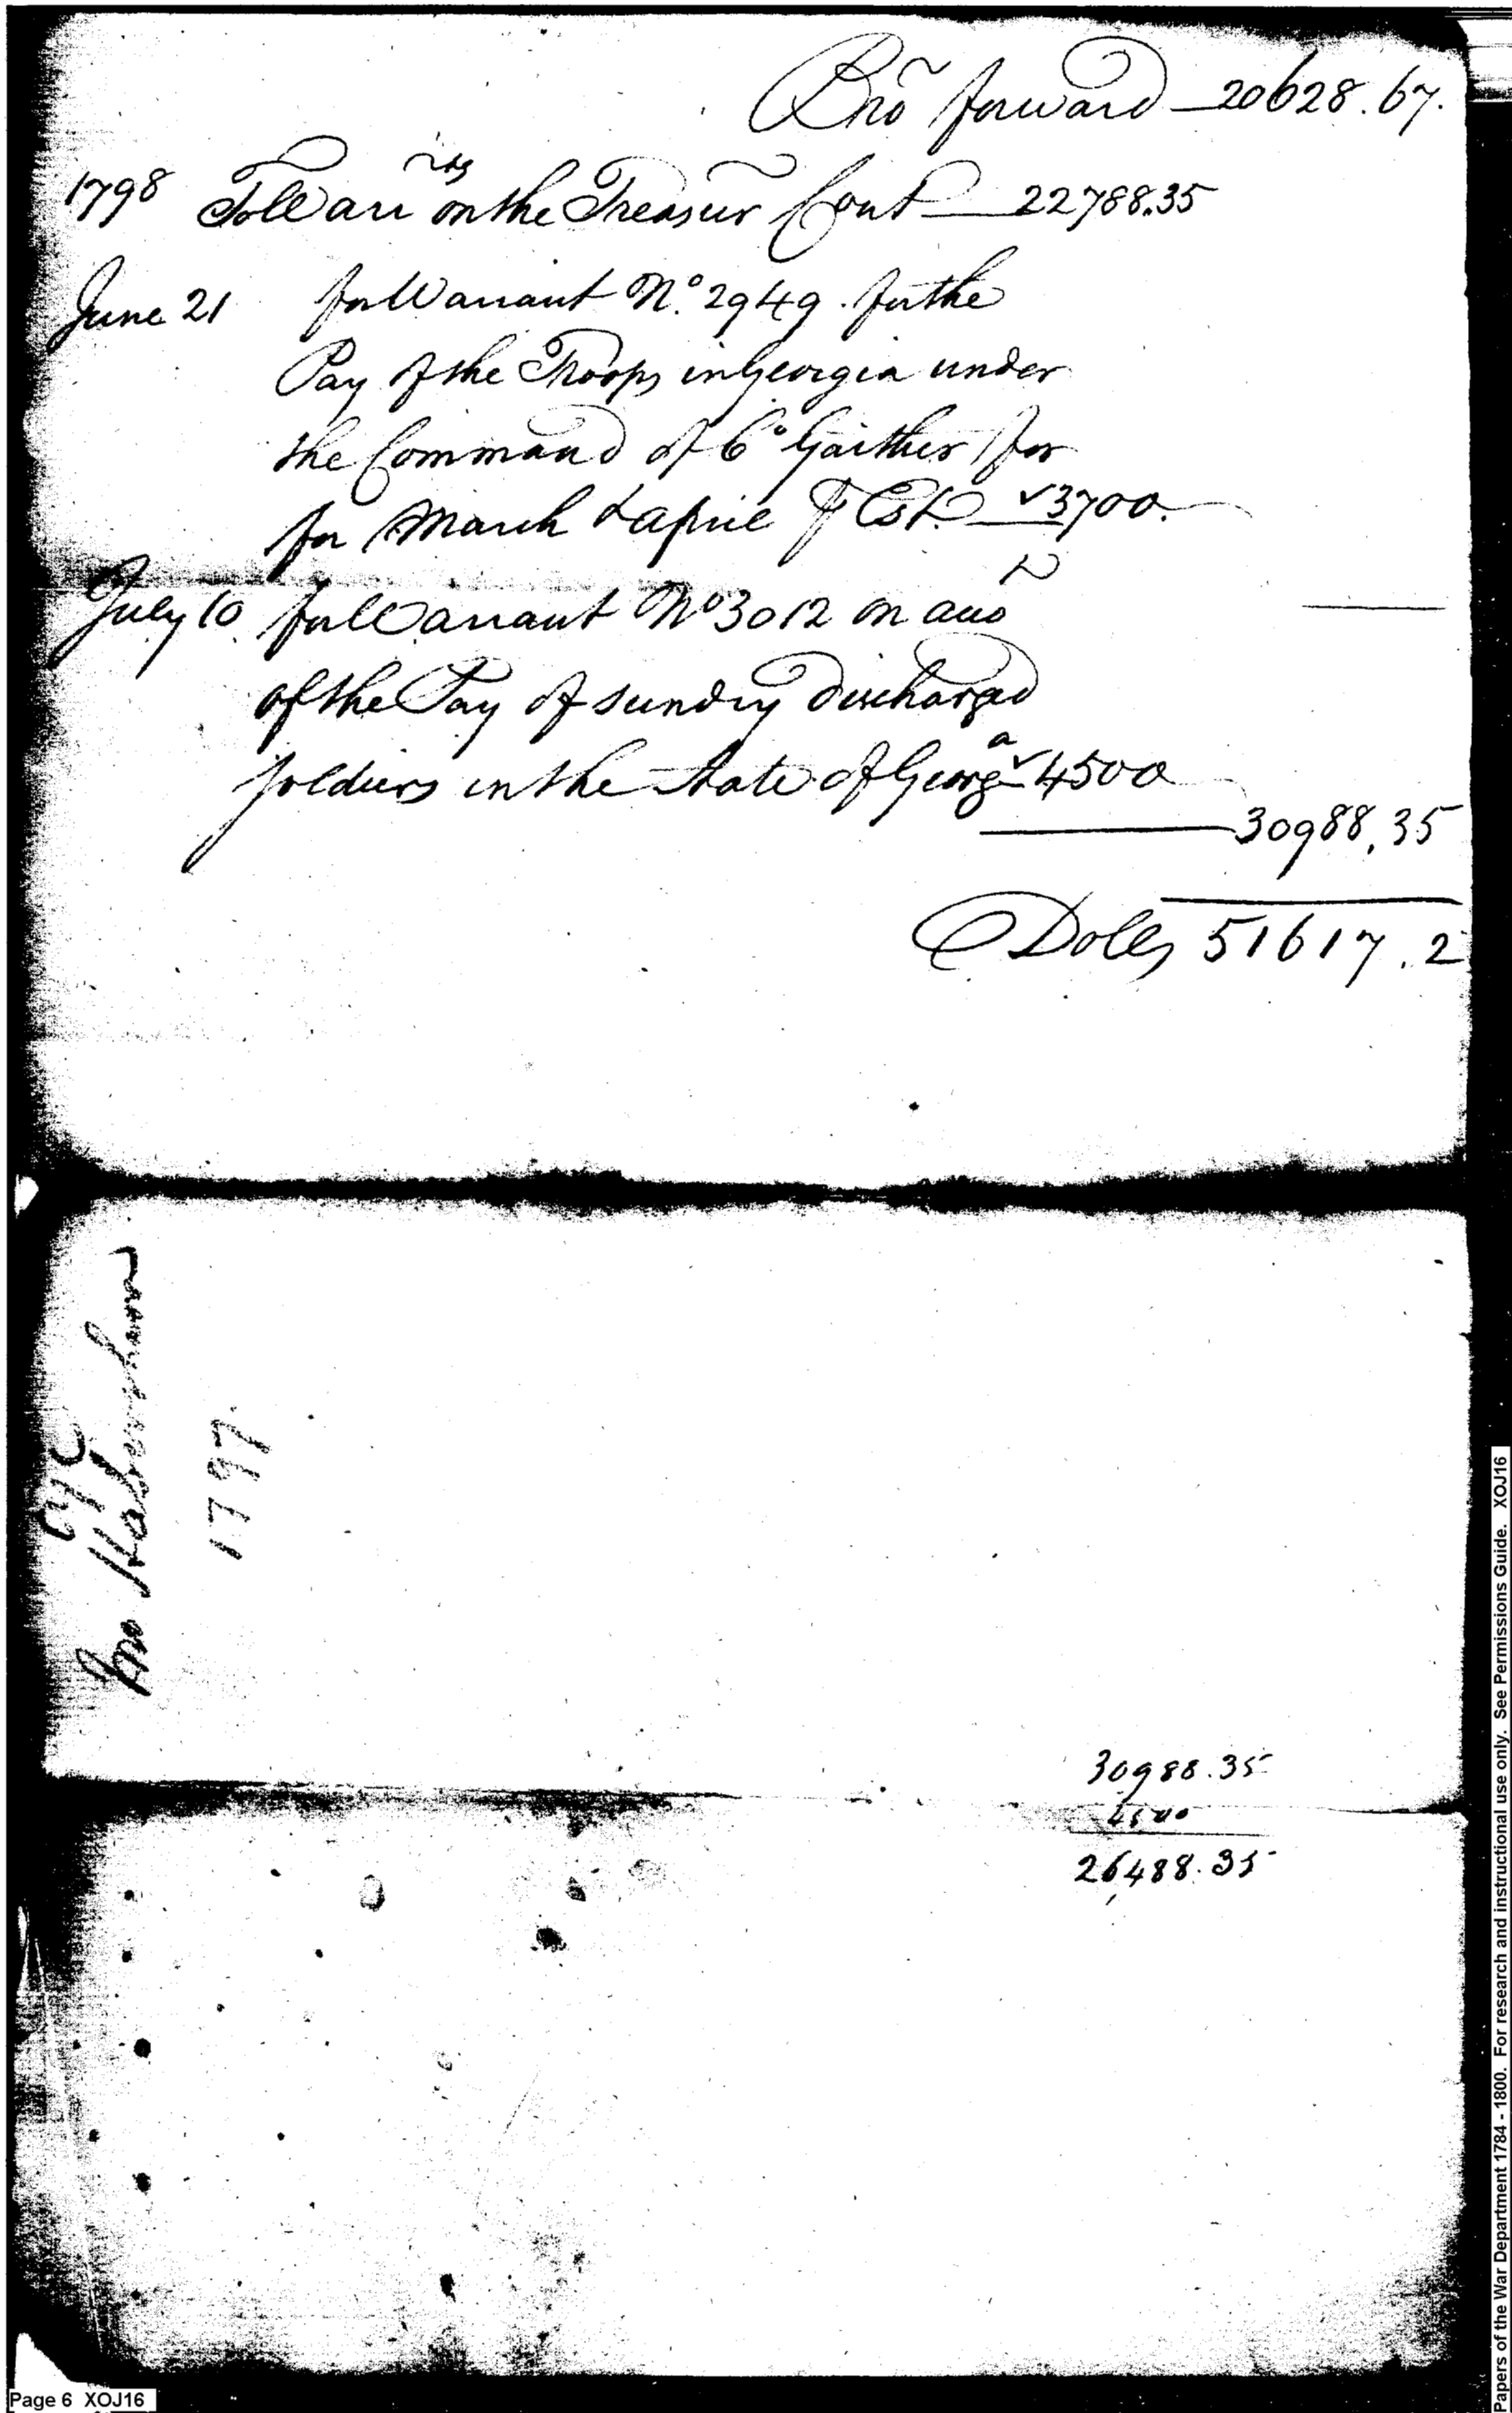 Bro forward 20628.67.
1798 To Warrts on the Treasur Cont 22788.35
June 21 for Warrant No. 2949. for the
Pay of the Troops in Georgia under
the Command of Co Gaither for
for March & April Est. 3700.
July 10 for Warrant No 3012 on acco
of the Pay of sundry discharged
soldiers in the State of Georga 4500
30988,35
Dolls 51617.2
Jno Habersham
1797
30988.35
4500
26488.35
Page 6 XOJ16
Papers of the War Department 1784 - 1800. For research and instructional use only. See Permissions Guide. XOJ16